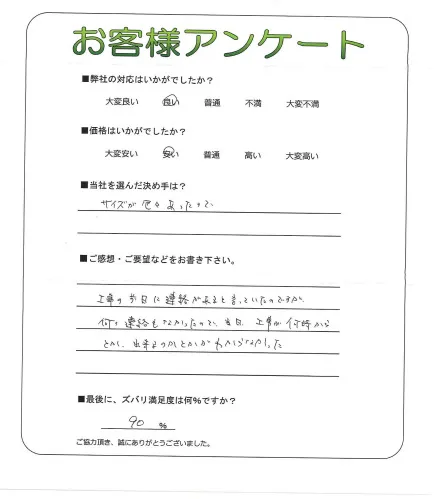 お客様アンケート
■弊社の対応はいかがでしたか？
大変良い 良い 普通 不満 大変不満
■価格はいかがでしたか？
大変安い 安い 普通 高い 大変高い
■当社を選んだ決め手は？
サイズが色々あったので
■ご感想・ご要望などをお書き下さい。
工事の前日に連絡が来ると言っていたのですが、
何も連絡もなかったので、当日、工事が何時から
とか、出来るのかとかがわからなかった
■最後に、ズバリ満足度は何%ですか？
90 %
ご協力頂き、誠にありがとうございました。